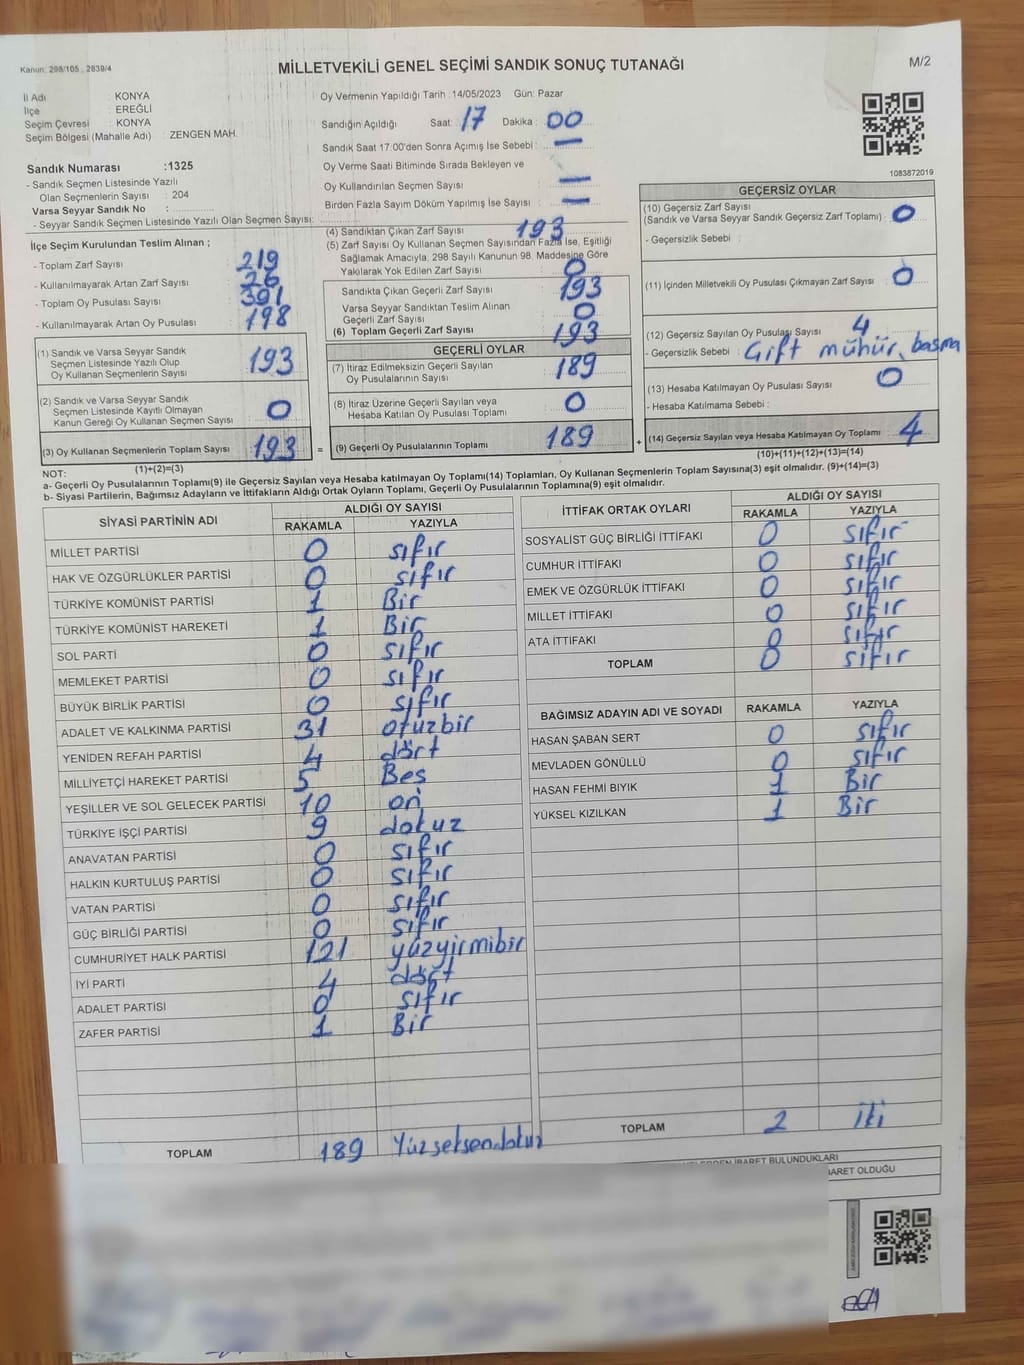 Kanun: 298/105 , 2839/4
MİLLETVEKİLİ GENEL SEÇİMİ SANDIK SONUÇ TUTANAĞI
M/2
İl Adı : KONYA
İlçe : EREĞLİ
Seçim Çevresi : KONYA
Seçim Bölgesi (Mahalle Adı) : ZENGEN MAH.
Sandık Numarası :1325
- Sandık Seçmen Listesinde Yazılı
Olan Seçmenlerin Sayısı : 204
Varsa Seyyar Sandık No :
- Seyyar Sandık Seçmen Listesinde Yazılı Olan Seçmen Sayısı:
Oy Vermenin Yapıldığı Tarih :14/05/2023 Gün: Pazar
Sandığın Açıldığı Saat: 17 Dakika : 00
Sandık Saat 17:00'den Sonra Açımış İse Sebebi : —
Oy Verme Saati Bitiminde Sırada Bekleyen ve
Oy Kullandırılan Seçmen Sayısı : —
Birden Fazla Sayım Döküm Yapılmış İse Sayısı : —
1083872019
İlçe Seçim Kurulundan Teslim Alınan ;
- Toplam Zarf Sayısı : 219
- Kullanılmayarak Artan Zarf Sayısı : 26
- Toplam Oy Pusulası Sayısı : 391
- Kullanılmayarak Artan Oy Pusulası : 198
(1) Sandık ve Varsa Seyyar Sandık
Seçmen Listesinde Yazılı Olup
Oy Kullanan Seçmenlerin Sayısı : 193
(2) Sandık ve Varsa Seyyar Sandık
Seçmen Listesinde Kayıtlı Olmayan
Kanun Gereği Oy Kullanan Seçmen Sayısı : 0
(3) Oy Kullanan Seçmenlerin Toplam Sayısı : 193 =
(1)+(2)=(3)
(4) Sandıktan Çıkan Zarf Sayısı : 193
(5) Zarf Sayısı Oy Kullanan Seçmen Sayısından Fazla İse, Eşitliği
Sağlamak Amacıyla, 298 Sayılı Kanunun 98. Maddesine Göre
Yakılarak Yok Edilen Zarf Sayısı : 0
Sandıkta Çıkan Geçerli Zarf Sayısı : 193
Varsa Seyyar Sandıktan Teslim Alınan
Geçerli Zarf Sayısı : 0
(6) Toplam Geçerli Zarf Sayısı : 193
GEÇERLİ OYLAR
(7) İtiraz Edilmeksizin Geçerli Sayılan
Oy Pusulalarının Sayısı : 189
(8) İtiraz Üzerine Geçerli Sayılan veya
Hesaba Katılan Oy Pusulası Toplamı : 0
(9) Geçerli Oy Pusulalarının Toplamı : 189 +
GEÇERSİZ OYLAR
(10) Geçersiz Zarf Sayısı
(Sandık ve Varsa Seyyar Sandık Geçersiz Zarf Toplamı) : 0
- Geçersizlik Sebebi :
(11) İçinden Milletvekili Oy Pusulası Çıkmayan Zarf Sayısı : 0
(12) Geçersiz Sayılan Oy Pusulası Sayısı : 4
- Geçersizlik Sebebi : Çift mühür basma
(13) Hesaba Katılmayan Oy Pusulası Sayısı : 0
- Hesaba Katılmama Sebebi :
(14) Geçersiz Sayılan veya Hesaba Katılmayan Oy Toplamı : 4
(10)+(11)+(12)+(13)=(14)
NOT:
a- Geçerli Oy Pusulalarının Toplamı(9) ile Geçersiz Sayılan veya Hesaba Katılmayan Oy Toplamı(14) Toplamları, Oy Kullanan Seçmenlerin Toplam Sayısına(3) eşit olmalıdır. (9)+(14)=(3)
b- Siyasi Partilerin, Bağımsız Adayların ve İttifakların Aldığı Ortak Oyların Toplamı, Geçerli Oy Pusulalarının Toplamına(9) eşit olmalıdır.
SİYASİ PARTİNİN ADI ALDIĞI OY SAYISI
RAKAMLA YAZIYLA
MİLLET PARTİSİ 0 sıfır
HAK VE ÖZGÜRLÜKLER PARTİSİ 0 sıfır
TÜRKİYE KOMÜNİST PARTİSİ 1 Bir
TÜRKİYE KOMÜNİST HAREKETİ 1 Bir
SOL PARTİ 0 sıfır
MEMLEKET PARTİSİ 0 sıfır
BÜYÜK BİRLİK PARTİSİ 0 sıfır
ADALET VE KALKINMA PARTİSİ 31 otuzbir
YENİDEN REFAH PARTİSİ 4 dört
MİLLİYETÇİ HAREKET PARTİSİ 5 Beş
YEŞİLLER VE SOL GELECEK PARTİSİ 10 on
TÜRKİYE İŞÇİ PARTİSİ 9 dokuz
ANAVATAN PARTİSİ 0 sıfır
HALKIN KURTULUŞ PARTİSİ 0 sıfır
VATAN PARTİSİ 0 sıfır
GÜÇ BİRLİĞİ PARTİSİ 0 sıfır
CUMHURİYET HALK PARTİSİ 121 yüzyirmibir
İYİ PARTİ 4 dört
ADALET PARTİSİ 0 sıfır
ZAFER PARTİSİ 1 Bir
TOPLAM 189 Yüzseksendokuz
İTTİFAK ORTAK OYLARI ALDIĞI OY SAYISI
RAKAMLA YAZIYLA
SOSYALİST GÜÇ BİRLİĞİ İTTİFAKI 0 sıfır
CUMHUR İTTİFAKI 0 sıfır
EMEK VE ÖZGÜRLÜK İTTİFAKI 0 sıfır
MİLLET İTTİFAKI 0 sıfır
ATA İTTİFAKI 0 sıfır
TOPLAM 0 sıfır
BAĞIMSIZ ADAYIN ADI VE SOYADI RAKAMLA YAZIYLA
HASAN ŞABAN SERT 0 sıfır
MEVLADEN GÖNÜLLÜ 0 sıfır
HASAN FEHMİ BIYIK 1 Bir
YÜKSEL KIZILKAN 1 Bir
TOPLAM 2 iki
İBARET BULUNDUKLARI
OLDUĞU